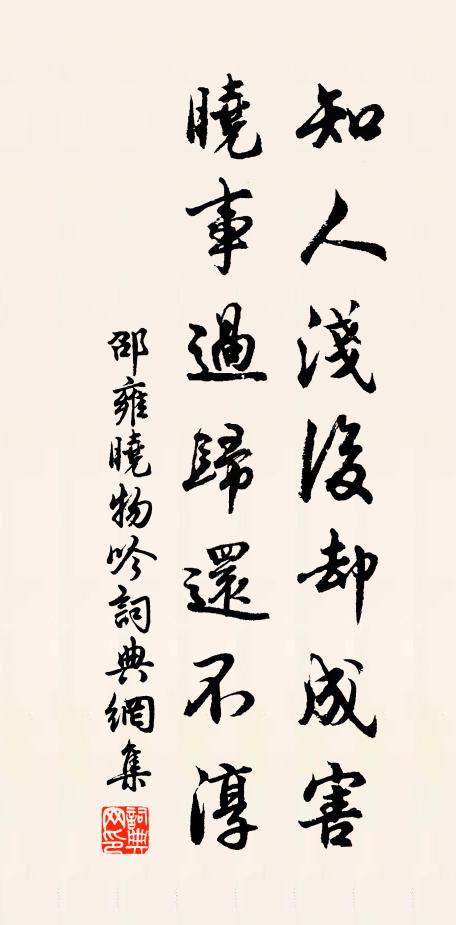 知人淺後却成害
曉事過歸還不淳
邵雍曉物吟詞典網集
詞典網印